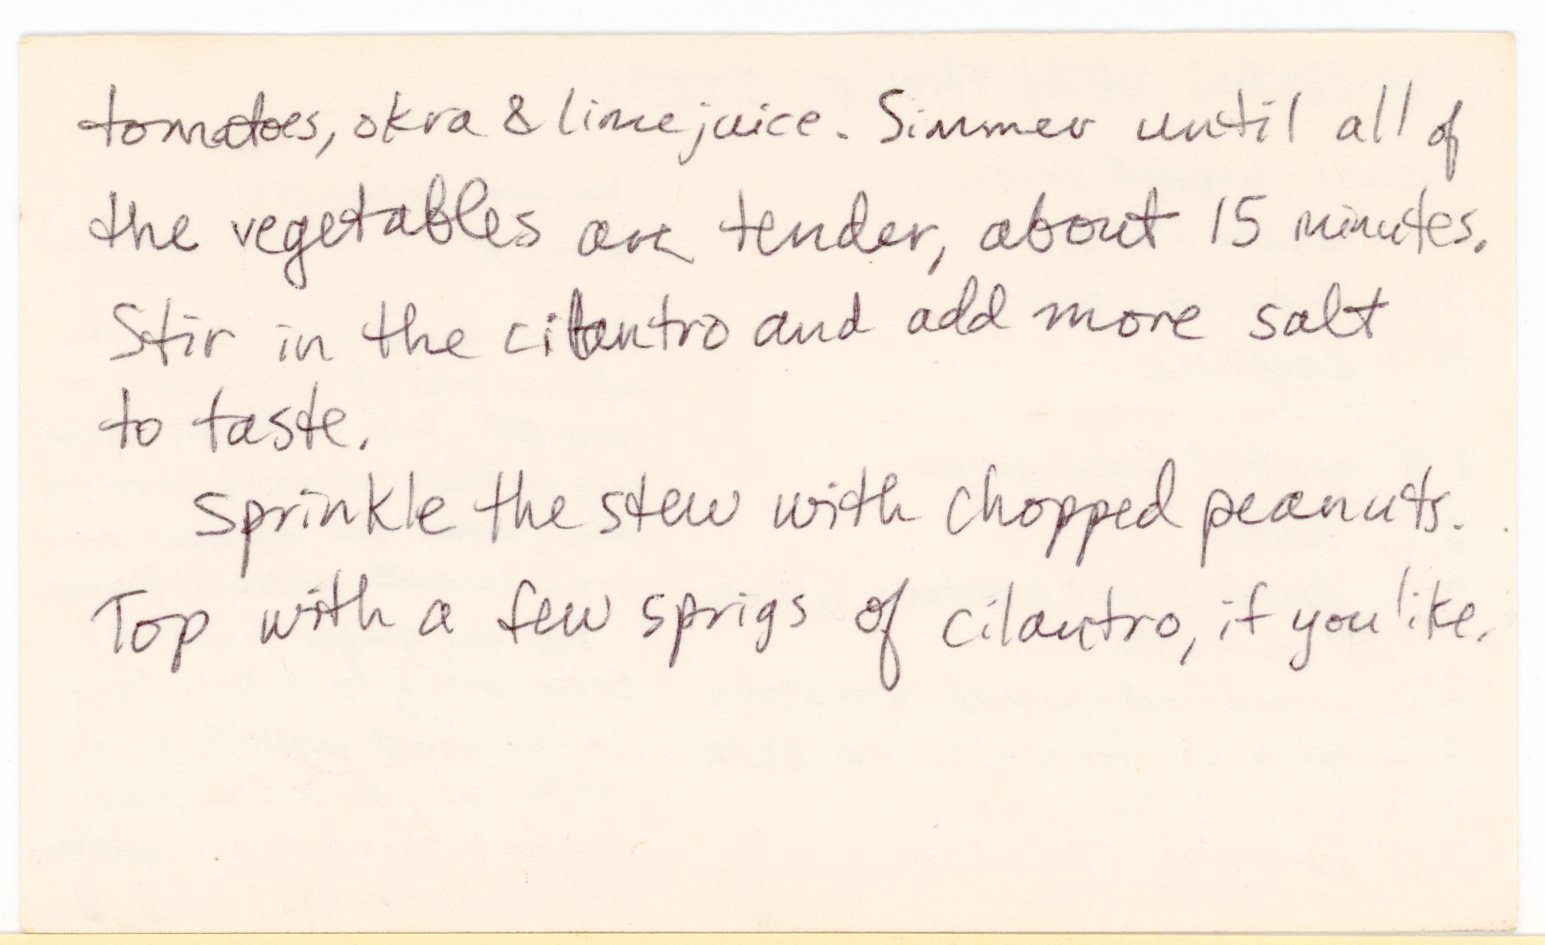 tomatoes, okra & lime juice. Simmer until all of
the vegetables are tender, about 15 minutes.
Stir in the cilantro and add more salt
to taste.
Sprinkle the stew with chopped peanuts.
Top with a few sprigs of cilantro, if you like.